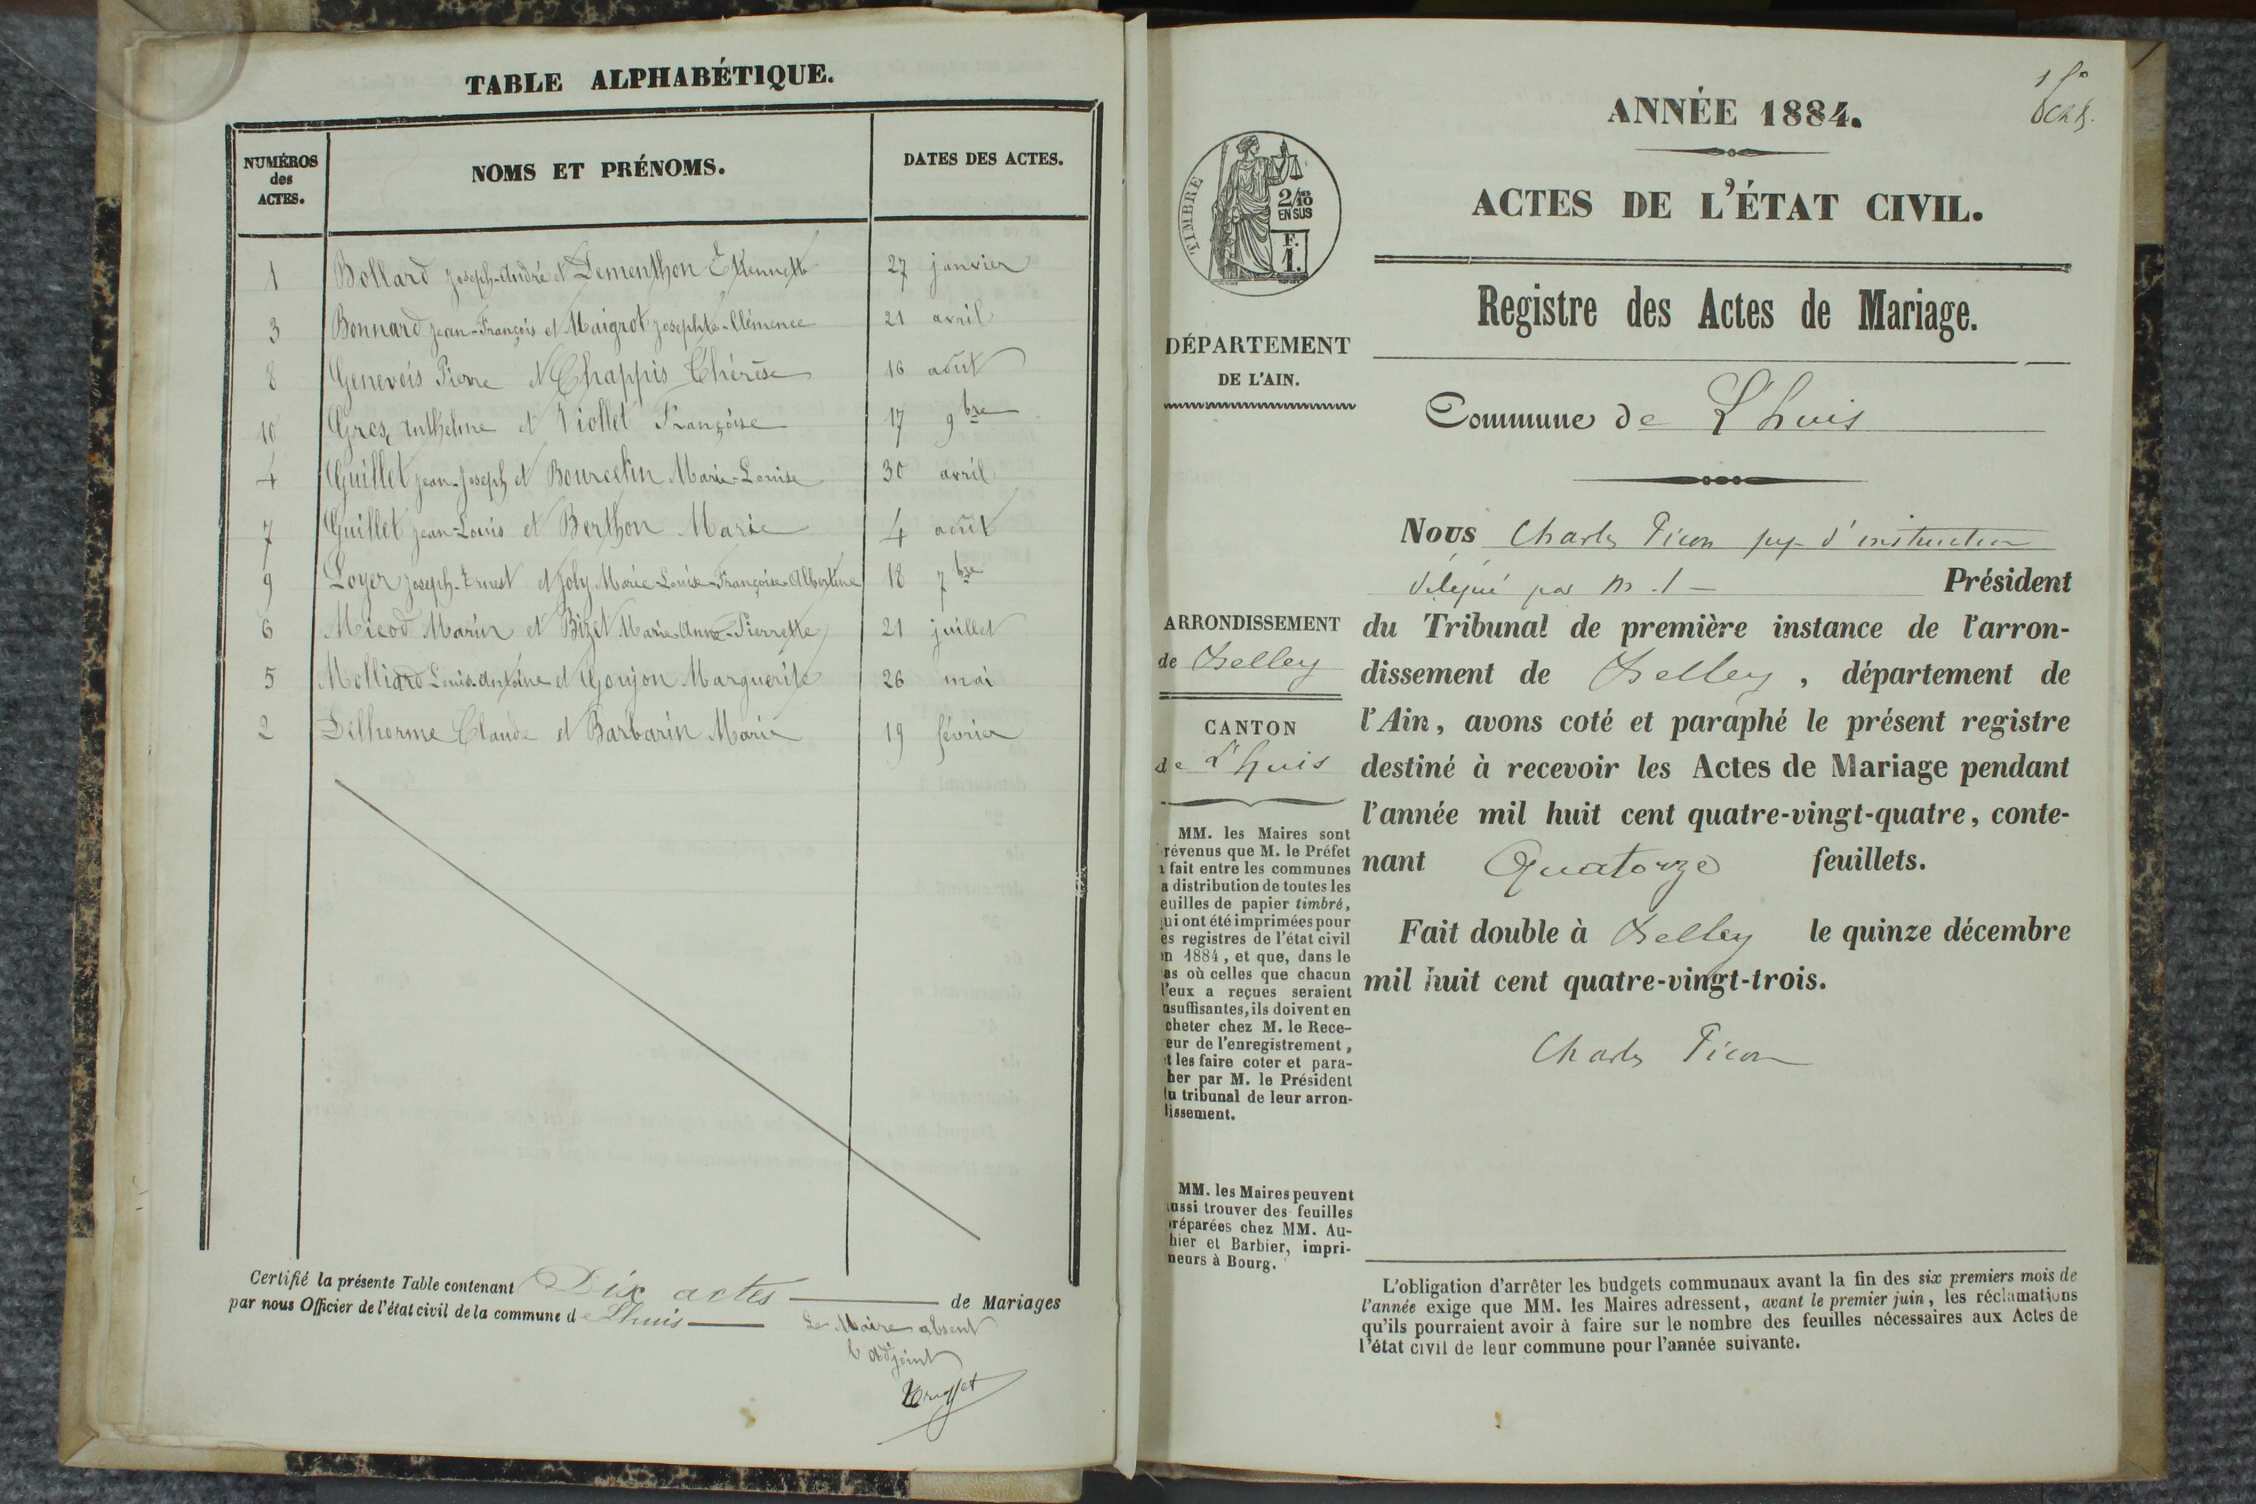 TABLE ALPHABÉTIQUE.
NUMÉROS
des
ACTES.
NOMS ET PRÉNOMS.
DATES DES ACTES.
1 Bollard Joseph-André et Dementhon Etiennette 27 janvier
3 Bonnard Jean-François et Maigrot Josephte-Clémence 21 avril
8 Genevois Pierre et Chappis Thérèse 16 août
10 Gros Anthelme et Viollet Françoise 17 9bre
4 Guillet Jean-Joseph et Bourcelin Marie-Louise 30 avril
7 Guillet Jean-Louis et Berthon Marie 4 août
9 Loyer Joseph-Ernest et Joly Marie-Louise-Françoise-Albertine 18 7bre
6 Micod Marin et Bizet Marie-Anne-Pierrette 21 juillet
5 Molliard Louis-Antoine et Goujon Marguerite 26 mai
2 Delhorme Claude et Barbarin Marie 19 février
Certifié la présente Table contenant Dix actes de Mariages
par nous Officier de l'état civil de la commune de Lhuis
Le Maire absent
l'adjoint
1 f°
ANNÉE 1884.
ACTES DE L'ÉTAT CIVIL.
TIMBRE
2/10
EN SUS
F.
1.
Registre des Actes de Mariage.
DÉPARTEMENT
DE L'AIN.
Commune de L'huis
Nous Charles Picon juge d'instruction
délégué par M. l Président
ARRONDISSEMENT
de Belley
CANTON
de L'huis
du Tribunal de première instance de l'arron-
dissement de Belley, département de
l'Ain, avons coté et paraphé le présent registre
destiné à recevoir les Actes de Mariage pendant
l'année mil huit cent quatre-vingt-quatre, conte-
nant Quatorze feuillets.
Fait double à Belley le quinze décembre
mil huit cent quatre-vingt-trois.
Charles Picon
MM. les Maires sont
révenus que M. le Préfet
fait entre les communes
a distribution de toutes les
euilles de papier timbré,
ui ont été imprimées pour
es registres de l'état civil
n 1884, et que, dans le
as où celles que chacun
l'eux a reçues seraient
nsuffisantes, ils doivent en
cheter chez M. le Rece-
eur de l'enregistrement,
t les faire coter et para-
her par M. le Président
u tribunal de leur arron-
lissement.
MM. les Maires peuvent
ussi trouver des feuilles
réparées chez MM. Au-
hier et Barbier, impri-
neurs à Bourg.
L'obligation d'arrêter les budgets communaux avant la fin des six premiers mois de
l'année exige que MM. les Maires adressent, avant le premier juin, les réclamations
qu'ils pourraient avoir à faire sur le nombre des feuilles nécessaires aux Actes de
l'état civil de leur commune pour l'année suivante.